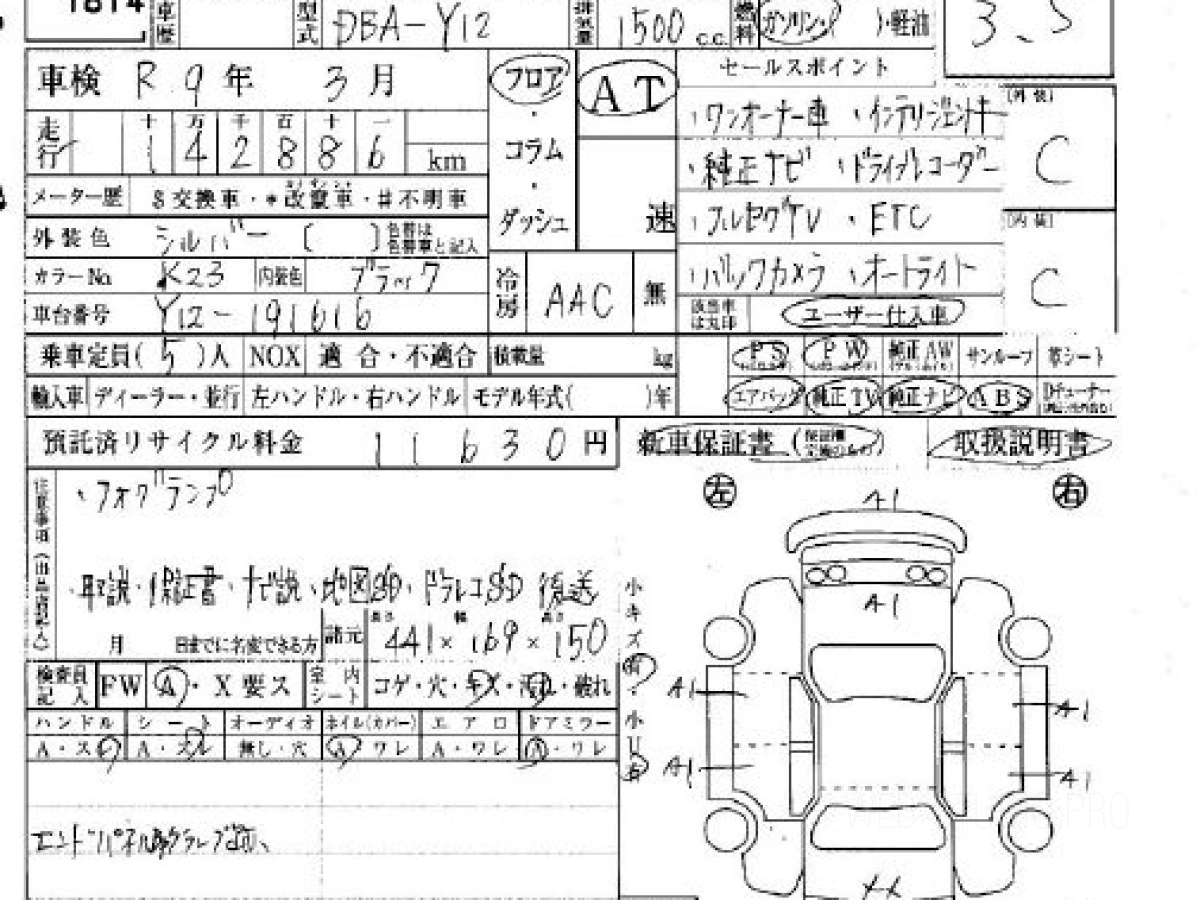 1814 車歴 型式 DBA-Y12 排気量 1500 c.c. 燃料 ガソリン ・軽油 3.5
車検 R 9年 3月 フロア・コラム・ダッシュ AT 速 セールスポイント
走行 十 万 千 百 十 一
1 4 2 8 8 6 km
・ワンオーナー車 ・インテリジェントキー
・純正ナビ ・ドライブレコーダー
・フルセグTV ・ETC
・バックカメラ ・オートライト
[外装] C
[内装] C
メーター歴 $交換車・*改竄車・#不明車
外装色 シルバー ( ) 色替は色替車と記入
カラーNo K23 内装色 ブラック
車台番号 Y12-191616
冷房 AAC 無
該当車は丸印 ユーザー仕入車
乗車定員(5)人 NOX 適合・不適合 積載量 kg
PS PW 純正AW サンルーフ 革シート
輸入車 ディーラー・並行 左ハンドル・右ハンドル モデル年式( )年
エアバッグ 純正TV 純正ナビ ABS
預託済リサイクル料金 11630円
新車保証書 取扱説明書
・フォグランプ
・取説・保証書・ナビ説・地図SD・ドラレコSD 後送
月 日までに名変できる方 諸元 長さ 441× 幅 169× 高さ 150
検査員記入 FW A・X要ス 室内シート コゲ・穴・キズ・汚れ・破れ
ハンドル シート オーディオ ネイル(カバー) エアロ ドアミラー
A・スレ A・スレ 無し・穴 A ワレ A・ワレ A・ワレ
左 右
A1
A1
A1 A1
A1 A1
小キズ有・小凹有